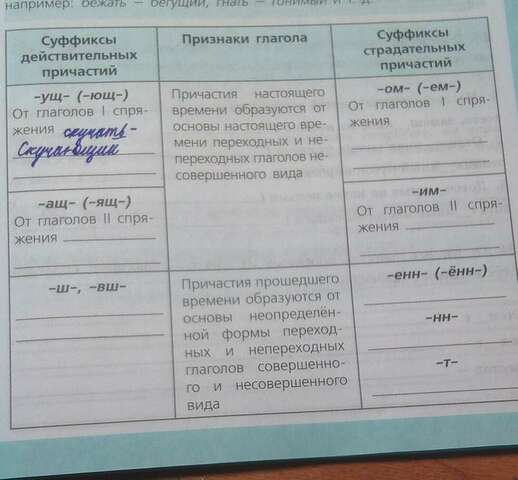 например: бежать — бегущий, гнать — гонимый и т. д.
Суффиксы
действительных
причастий
Признаки глагола
Суффиксы
страдательных
причастий
-ущ- (-ющ-)
От глаголов I спря-
жения скучать-
Скучающий
Причастия настоящего
времени образуются от
основы настоящего вре-
мени переходных и не-
переходных глаголов не-
совершенного вида
-ом- (-ем-)
От глаголов I спря-
жения
-ащ- (-ящ-)
От глаголов II спря-
жения
-им-
От глаголов II спря-
жения
-ш-, -вш-
Причастия прошедшего
времени образуются от
основы неопределён-
ной формы переход-
ных и непереходных
глаголов совершенно-
го и несовершенного
вида
-енн- (-ённ-)
-нн-
-т-